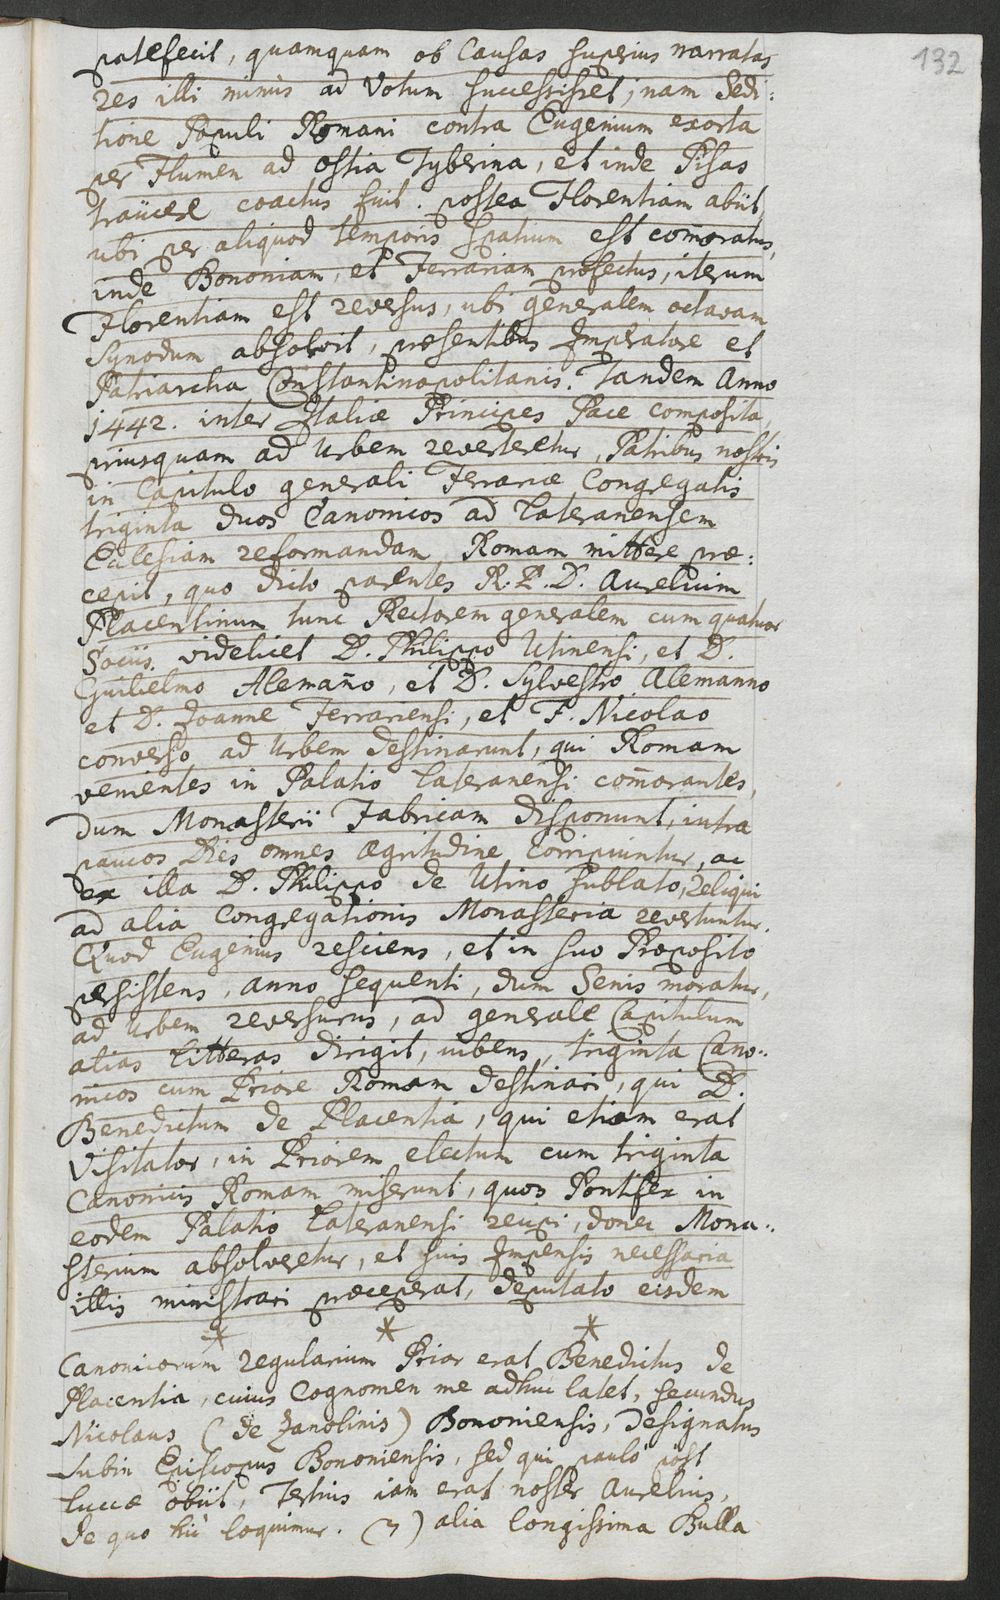 132
patefecit, quamquam ob Causas superius narratas
res illi minùs ad Votum successisset; nam Sedi:
tione Populi Romani contra Eugenium exorta
per Flumen ad ostia Tyberina, et inde Pisas
traiicere coactus fuit. postea Florentiam abiit,
ubi per aliquod temporis spatium est com̃oratus,
inde Bononiam, et Ferrariam profectus, iterum
Florentiam est reversus, ubi generalem octavam
Synodum absolvit, præsentibus Imperatore et
Patriarcha Constantinopolitanis. Tandem Anno
1442. inter Italiæ Principes Pace composita,
priusquam ad Urbem reverteretur, Patribus nostris
in Capitulo generali Ferrariæ Congregatis
triginta duos Canonicos ad Lateranensem
Eclesiam reformandam Romam mittere præ:
cepit, quo dicto parentes R. P. D. Aurelium
Placentinum tunc Rectorem generalem cum quatuor
Sociis. videlicet D. Philippo Utinensi, et D.
Guilielmo Alemaño, et D. Sylvestro Alemanno
et D. Joanne Ferrariensi, et F. Nicolao
converso ad Urbem destinarunt, qui Romam
venientes in Palatio Lateranensi com̃orantes,
dum Monasterii Fabricam disponunt, intra
paucos Dies omnes ægritudine corripiuntur, ac
ex illa D. Philippo de Utino sublato, reliqui
ad alia Congregationis Monasteria revertuntur.
Quod Eugenius resciens, et in suo Proposito
persistens, anno sequenti, dum Senis moratur,
ad Urbem reversurus, ad generale Capitulum
alias Litteras dirigit, iubens, triginta Cano:
nicos cum Priore Romam destinari, qui D.
Benedictum de Placentia, qui etiam erat
Visitator, in Priorem electum cum triginta
Canonicis Romam miserunt, quos Pontifex in
eodem Palatio Lateranensi recipi, donec Mona:
sterium absolveretur, et suis Impensis necessaria
illis ministrari præceperat, deputato eisdem
* * *
Canonicorum regularium Prior erat Benedictus de
Placentia, cuius Cognomen me adhuc latet, secundus
Nicolaus (de Zanolinis) Bononiensis, designatus
subin Episcopus Bononiensis, sed qui paulò post
Luccæ obiit, Tertius iam erat noster Aurelius,
de quo hìc loquimur. (7) alia longissima Bulla